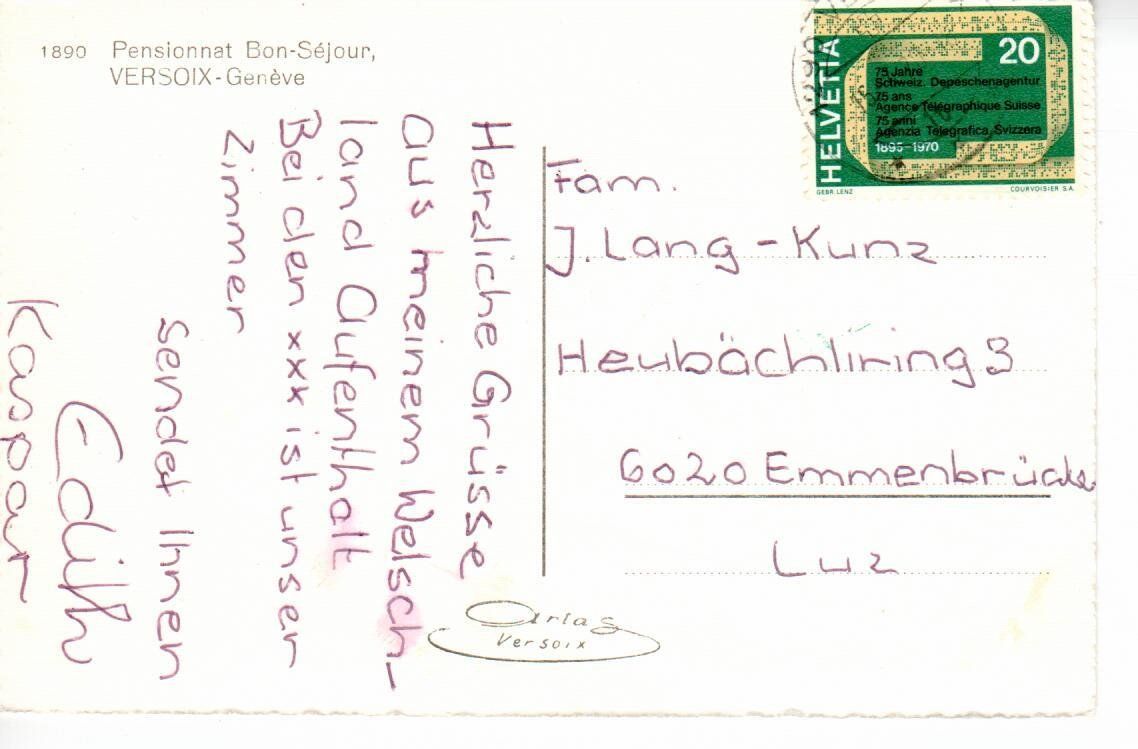 1890 Pensionnat Bon-Séjour,
VERSOIX-Genève
Herzliche Grüsse
aus meinem Welsch-
land Aufenthalt
Bei den xxx ist unser
Zimmer
sendet Ihnen
Edith
Kaspar
HELVETIA
20
75 Jahre
Schweiz. Depeschenagentur
75 ans
Agence Télégraphique Suisse
75 anni
Agenzia Telegrafica Svizzera
1895-1970
GEBR. LENZ
COURVOISIER S.A.
Fam.
J. Lang-Kunz
Heubächliring 3
6020 Emmenbrücke
Luz
Artas
Versoix